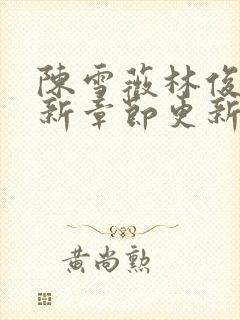 陳雪薇林俊
新章節更新
黃尚勲